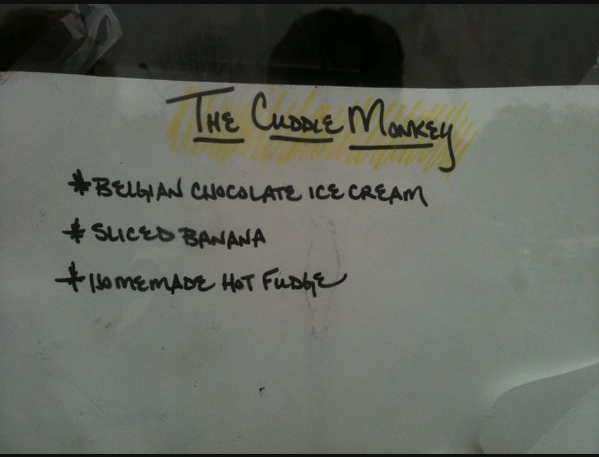 THE CUDDLE MONKEY
* BELGIAN CHOCOLATE ICE CREAM
* SLICED BANANA
* HOMEMADE HOT FUDGE